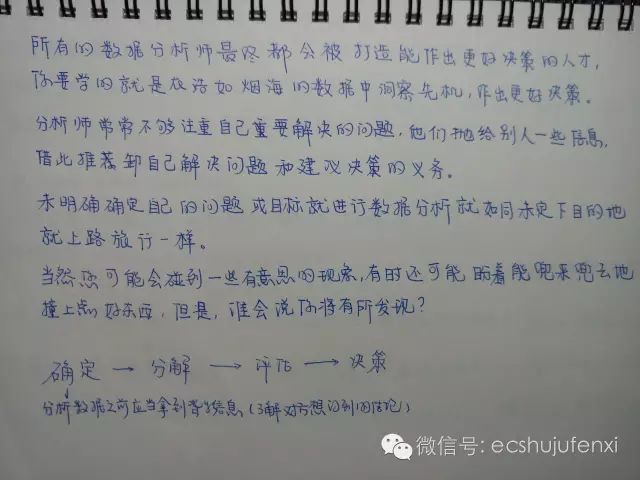 所有的数据分析师最终都会被打造能作出更好决策的人才,
你要学的就是在浩如烟海的数据中洞察先机,作出更好决策。
分析师常常不够注重自己重要解决的问题,他们抛给别人一些信息,
借此推荐卸自己解决问题和建议决策的义务。
未明确确定自己的问题或目标就进行数据分析就如同未定下目的地
就上路旅行一样。
当然您可能会碰到一些有意思的现象,有时还可能盼着能兜来兜去地
撞上点好东西,但是,谁会说你将有所发现?
确定 → 分解 → 评估 → 决策
分析数据之前应当拿到背景信息(了解对方想得到的结论)
微信号: ecshujufenxi